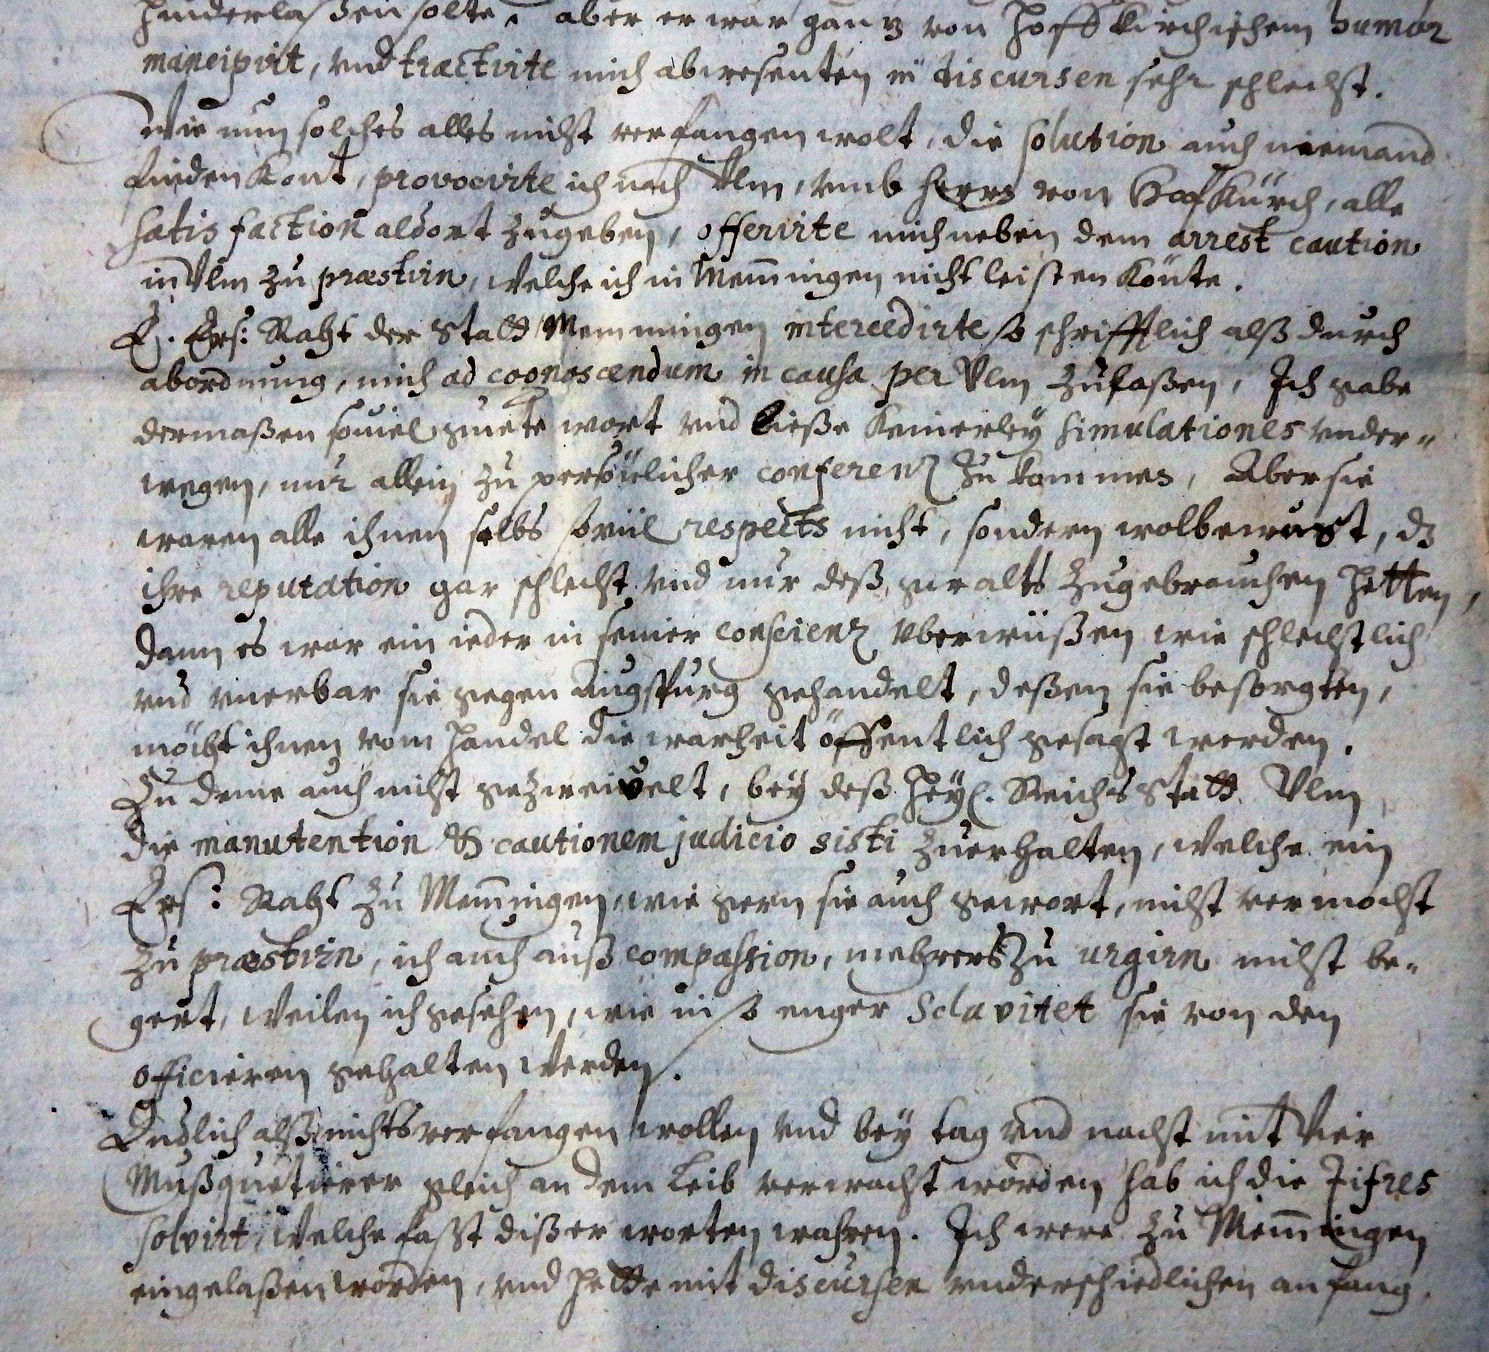 hinderlaßen solte, aber er war gantz von Hoffkirchischem humor
mancipirt, vnd tractirte mich abwesenten in discursen sehr schlecht.
Wie nun solches alles nicht verfangen wolt, die solution auch niemand
finden kont, provocirte ich nach Vlm, vmb herrn von Hofkürch, alle
satisfaction aldort zugeben, offerirte mich neben dem arrest caution
in Vlm zu præstirn, welche ich in Memingen nicht leisten könte.
E. Ers: Raht der Statt Memmingen intercedirte so schrifftlich alß durch
abordnung, mich ad cognoscendum in causa per Vlm zulaßen, Ich gabe
dermaßen souiel guete wort vnd ließe keinerley simulationes vnder-
wegen, nur allein zu persönlicher conferenz zu kommen, Aber sie
waren alle ihnen selbs soviil respects nicht, sondern wolbewust, dz
ihre reputation gar schlecht vnd nur deß gwalts zugebrauchen hetten,
dann es war ein ieder in seiner conscienz vberwüßen wie schlechtlich
vnd vnerbar sie gegen Augspurg gehandelt, deßen sie besorgten,
möcht ihnen vom handel die warheit öffentlich gesagt werden.
Zu deme auch nicht gezweivelt, bey deß Heyl. Reichs Statt Vlm
die manutention & cautionem judicio sisti zuerhalten, welche ein
Ers: Raht zu Memingen, wie gern sie auch gewort, nicht vermocht
zu præstirn, ich auch auß compassion, mehrers zu urgirn nicht be-
gert, weilen ich gesehen, wie in so enger Sclavitet sie von den
officieren gehalten werden.
Endlich alß nichts verfangen wollen vnd bey tag vnd nacht mit vier
Mußquetierer gleich an dem leib verwacht worden hab ich die Zifres
solvirt, welche fast dißer worten wahren. Ich were zu Memingen
eingelaßen worden, vnd hette mit discursen vnderschiedlichen anfang